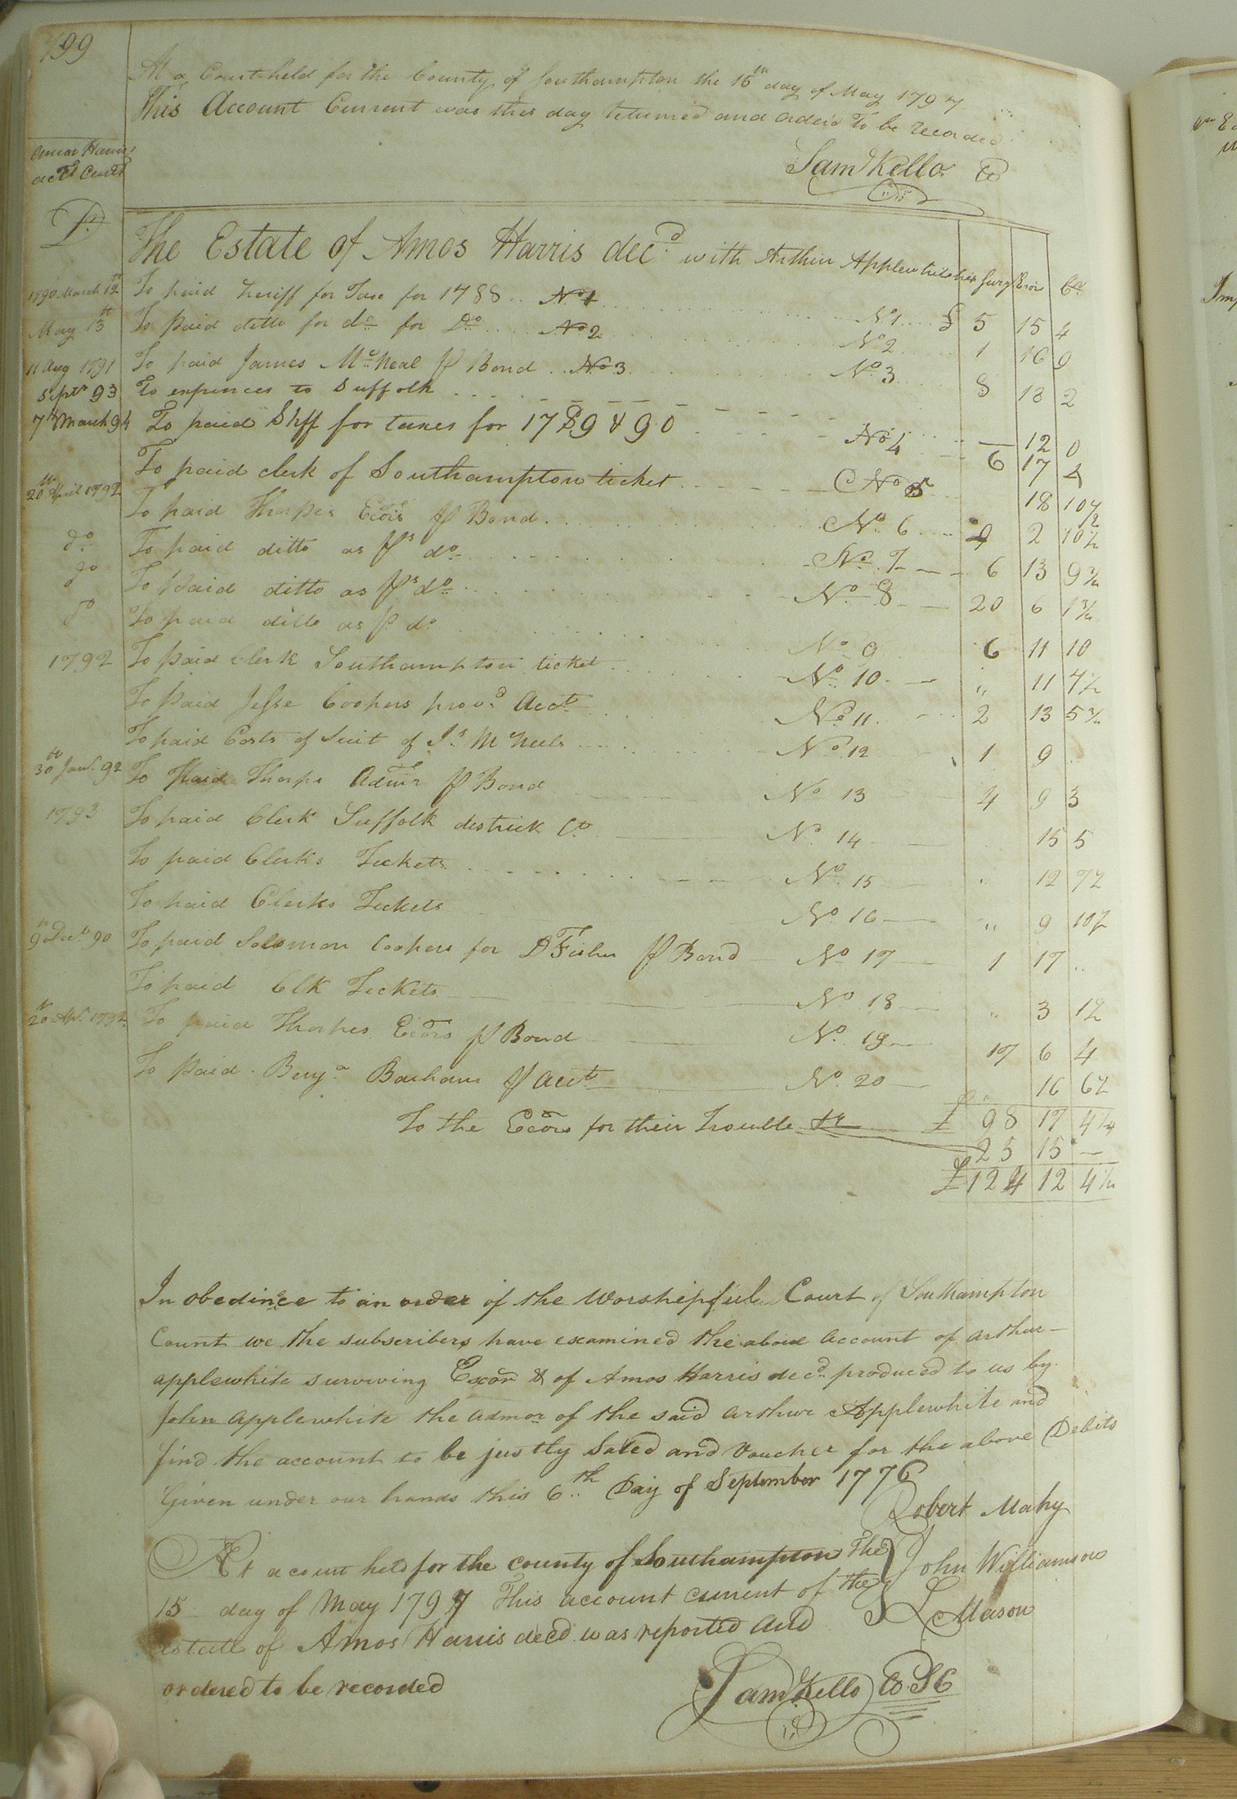 199
At a Court held for the County of Southampton the 15th day of May 1797
This Account Current was this day returned and orderd To be recorded
Sam Kello Co
Amos Harris
acct Curt
Dr
The Estate of Amos Harris decd with Arthur Applewhite
1790 March 12th To paid Sheriff for Taxe for 1788 .. No 1 No 1 £ 5 15 4
May 13th To paid ditto for do for Do No 2 No 2 1 16 9
11 Aug 1791 To paid James McNeal pr Bond .. No 3 No 3 8 13 2
Septr 93 To expences to Suffolk 12 0
7th March 94 To paid Shff for taxes for 1789 & 90 No 4 6 17 4
To paid clerk of Southampton ticket No 5 18 10 1/2
20th April 1792 To paid Thorpes Exors pr Bond No 6 9 2 10 1/2
do To paid ditto as prs do No 7 6 13 9 3/4
do To paid ditto as prs do No 8 20 6 1 3/4
do To paid ditto as pr do No 9 6 11 10
1792 To paid Clerk Southampton ticket No 10 " 11 4 1/2
To paid Jesse Coopers provd Acct No 11 2 13 5 3/4
To paid Costs of Suit of Js McNeels No 12 1 9
30th Janr 92 To Paid Thorps Admr pr Bond No 13 4 9 3
1793 To paid Clerk Suffolk destrick Ct No 14 15 5
To paid Clerks Tickets No 15 12 7 1/2
To paid Clerks Tickets No 16 " 9 10 1/2
9th Decr 90 To paid Solomon Coopers for D Fisher pr Bond No 17 1 17 ..
To paid Clk Tickets No 18 " 3 1 1/2
20th Apl 1792 To paid Thorpes Exors pr Bond No 19 17 6 4
To Paid Benja Barham pr acct No 20 16 6 1/2
£ 98 17 4 1/4
To the Exors for their Trouble &c 25 15 —
£ 124 12 4 1/4
In obedince to an order of the Worshipful Court of Southampton
Count we the subscribers have examined the above account of Arthur
applewhite surviving Exor & of Amos Harris decd produced to us by
John Applewhite the admor of the said Arthur Applewhite and
find the account to be justly Sated and Voucher for the above Debits
Given under our hands this 6th Day of September 1776
Robert Mahy
John Williamson
L Mason
At a court held for the county of Southampton The
15 day of May 1797 This account current of the
estate of Amos Harris decd was reported and
ordered to be recorded
Sam Kello Co SC